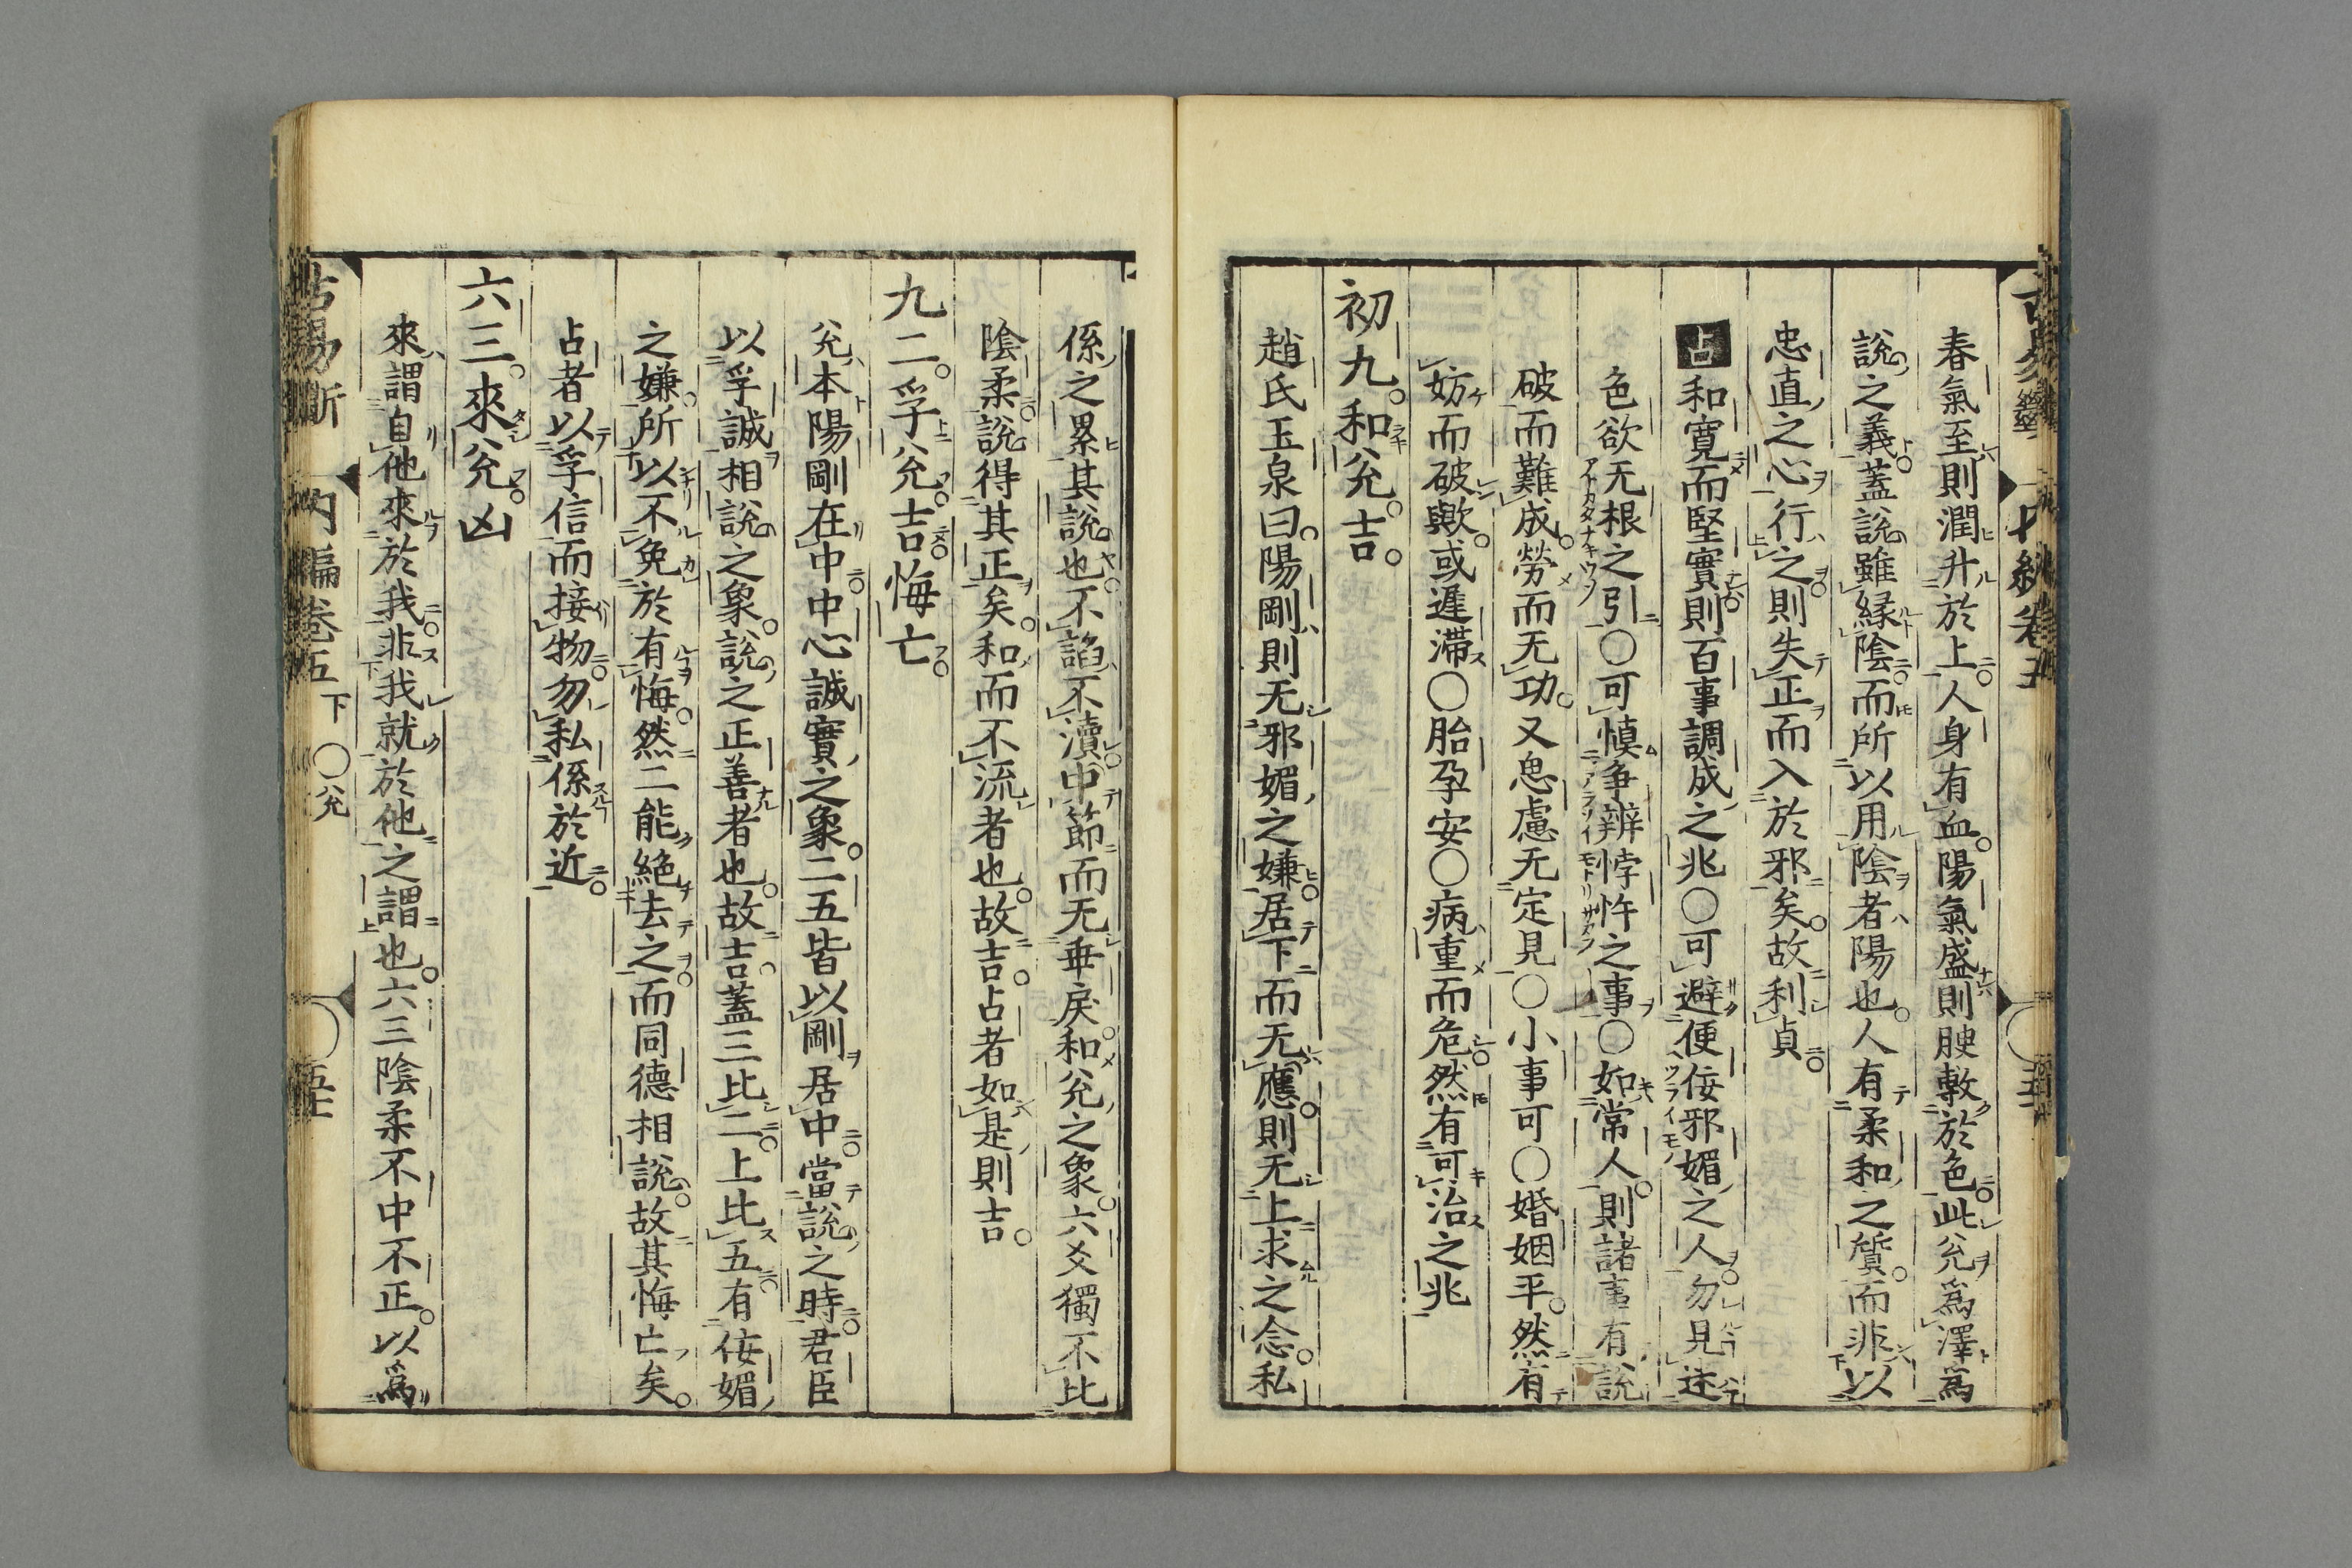 春氣至則潤升於上人身有血陽氣盛則腴敷於色此兊爲澤爲
說之義蓋說雖縁陰而所以用陰者陽也人有柔和之質而非以
忠直之心行之則失正而入於邪矣故利貞
占和寛而堅實則百事調成之兆〇可避便佞邪媚之人勿見迷
色欲无根之引〇可慎争辨悖忤之事〇如常人則諸事有說
破而難成勞而无功又思慮无定見〇小事可〇婚姻平然有
妨而破歟或遲滞〇胎孕安〇病重而危然有可治之兆
初九和兊吉
趙氏玉泉曰陽剛則无邪媚之嫌居下而无應則无上求之念私
係之累其說也不諂不瀆中節而无乖戾和兊之象六爻獨不比
陰柔說得其正矣和而不流者也故吉占者如是則吉
九二孚兊吉悔亡
兊本陽剛在中中心誠實之象二五皆以剛居中當說之時君臣
以孚誠相說之象說之正善者也故吉蓋三比二上比五有佞媚
之嫌所以不免於有悔然二能絶去之而同德相說故其悔亡矣
占者以孚信而接物勿私係於近
六三來兊凶
來謂自他來於我非我就於他之謂也六三陰柔不中不正以爲
占易斷 内編卷五 下 〇兊